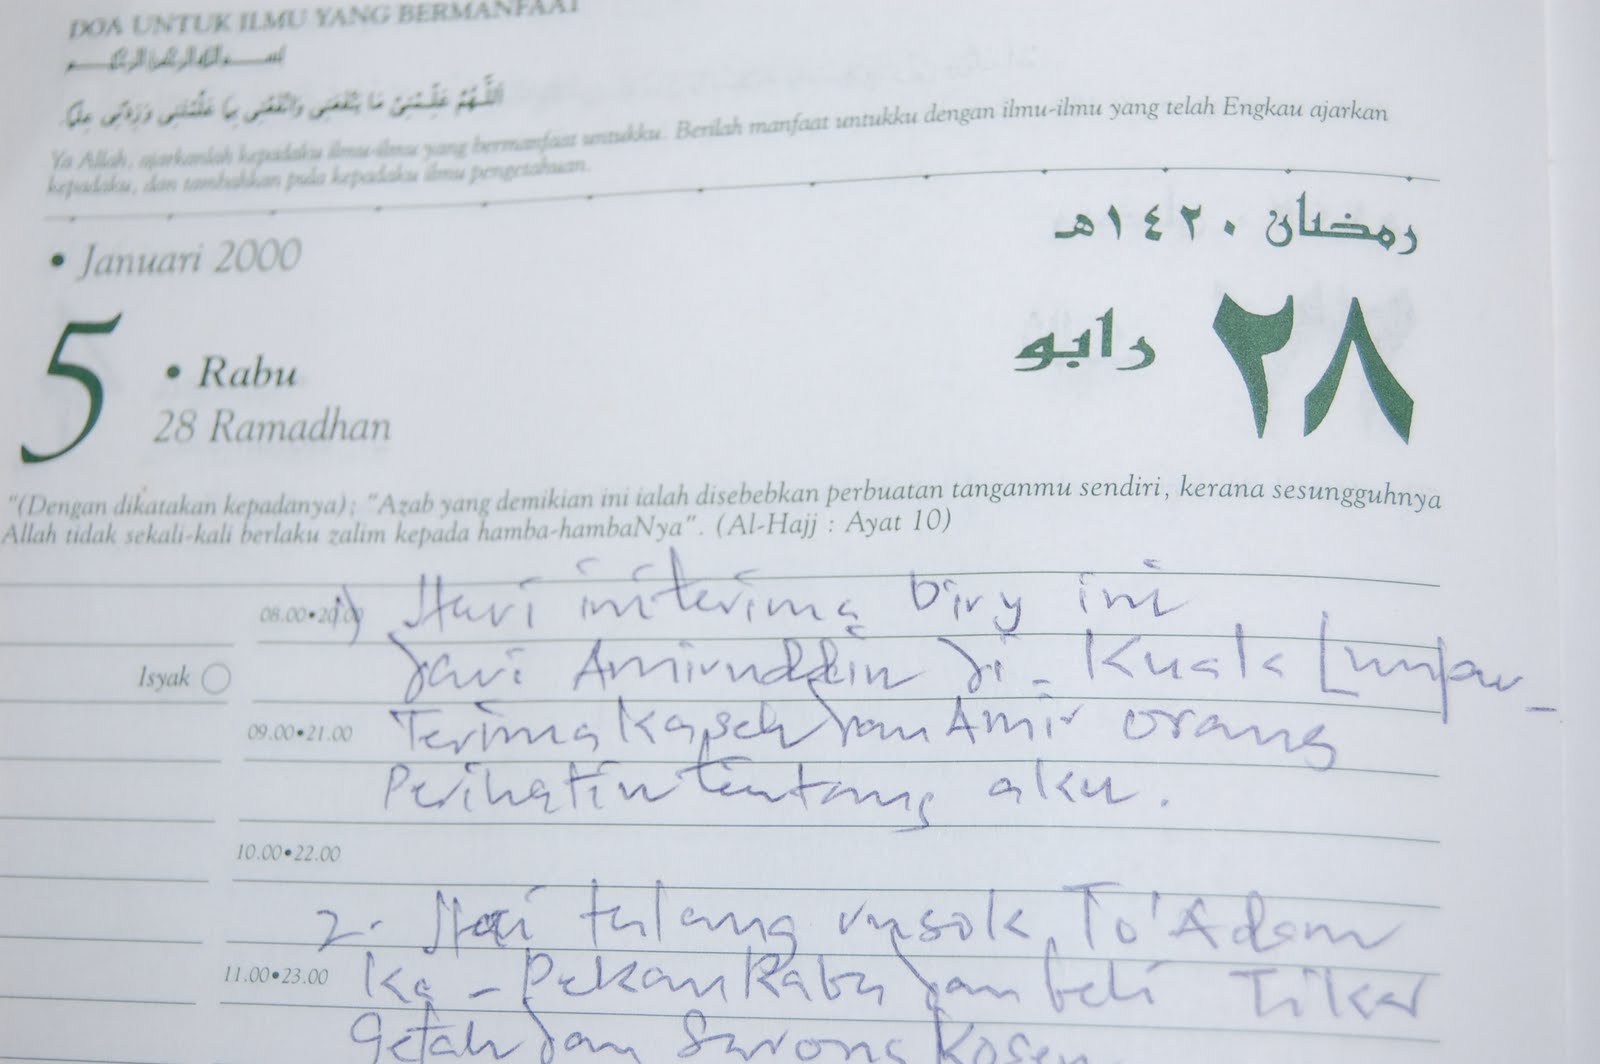 DOA UNTUK ILMU YANG BERMANFAAT
بسم الله الرحمن الرحيم
اَللَّهُمَّ عَلِّمْنِيْ مَا يَنْفَعُنِي وَانْفَعْنِي بِمَا عَلَّمْتَنِي وَزِدْنِي عِلْمًا.
Ya Allah, ajarkanlah kepadaku ilmu-ilmu yang bermanfaat untukku. Berilah manfaat untukku dengan ilmu-ilmu yang telah Engkau ajarkan
kepadaku, dan tambahkan pula kepadaku ilmu pengetahuan.
• Januari 2000
رمضان ١٤٢٠هـ
5
• Rabu
28 Ramadhan
رابو
٢٨
"(Dengan dikatakan kepadanya); "Azab yang demikian ini ialah disebebkan perbuatan tanganmu sendiri, kerana sesungguhnya
Allah tidak sekali-kali berlaku zalim kepada hamba-hambaNya". (Al-Hajj : Ayat 10)
08.00•20.00
1) Hari ini terima diry ini
Isyak
dari Amiruddin di - Kuala Lumpur -
09.00•21.00
Terima Kaseh dan Amir orang
Perihatin tentang aku.
10.00•22.00
2. Hari tulang rusok To' Adam
11.00•23.00
Ka - Pekan Rabu dan beli Tikar
Getah dan Sarong Kosen